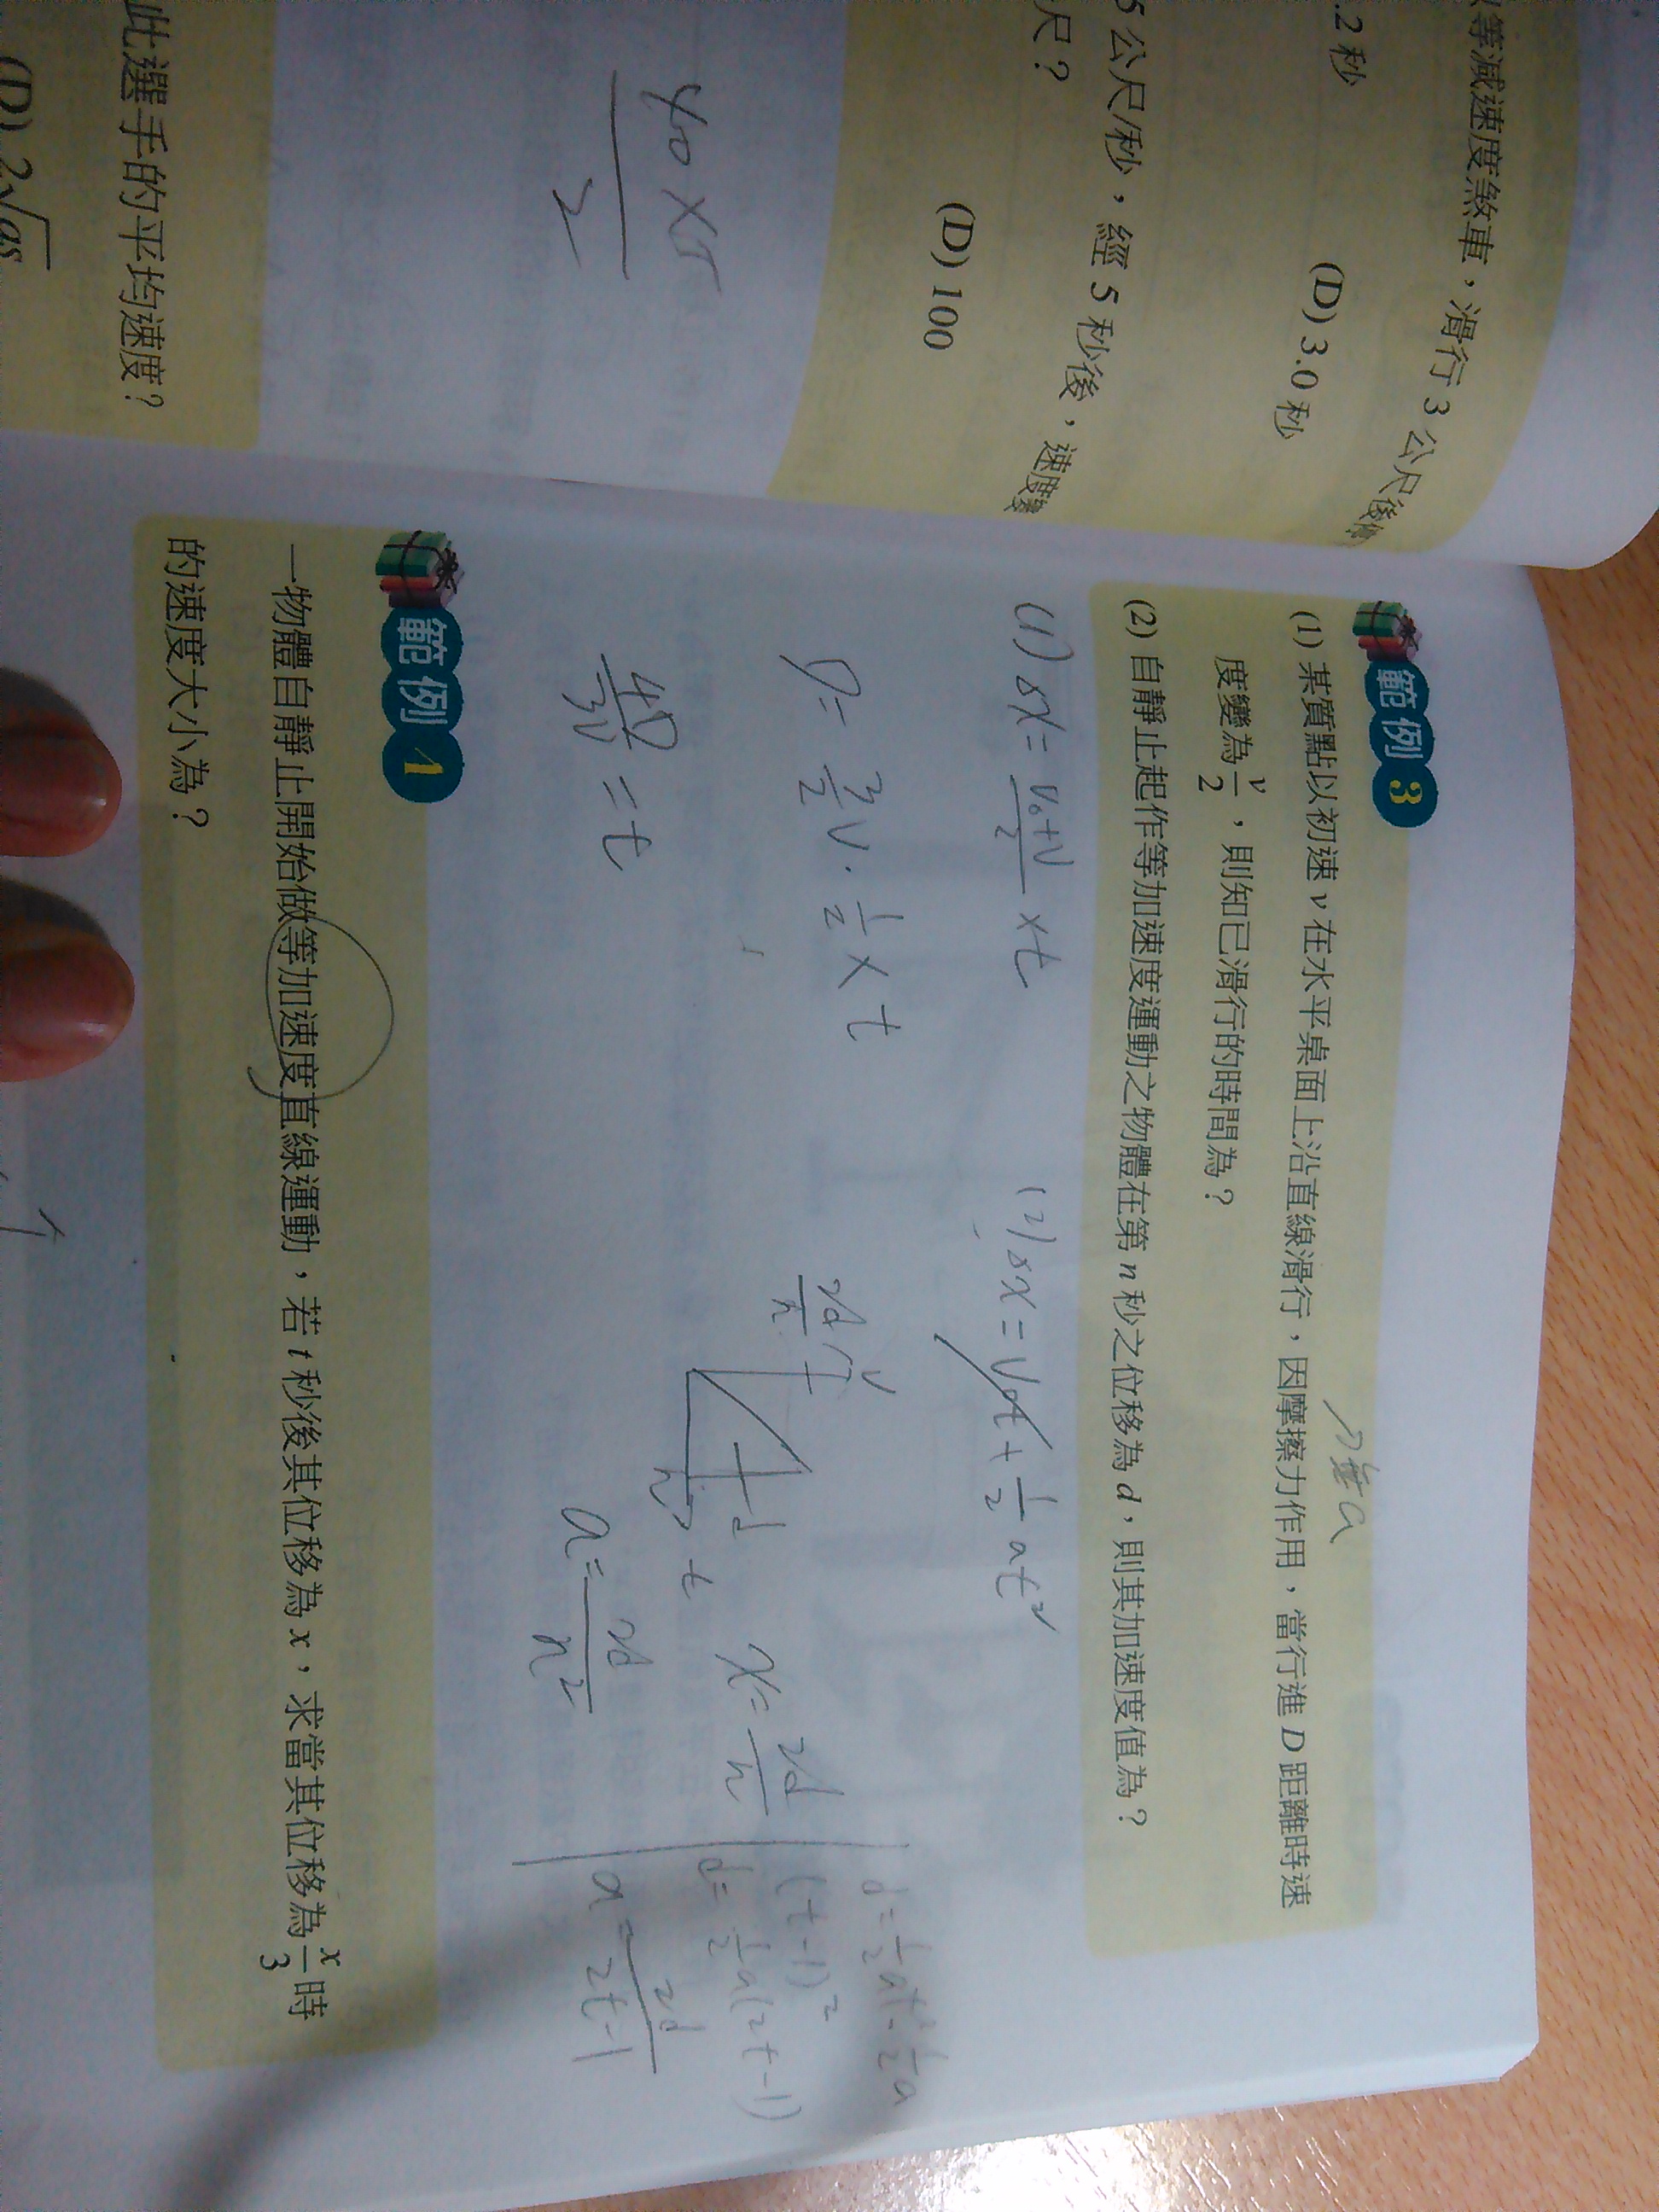 等減速度煞車，滑行 3 公尺後
.2 秒
(D) 3.0 秒
5 公尺/秒，經 5 秒後，速度
尺？
(D) 100
40×5
2
此選手的平均速度？
(D) 2√as
範例 3
(1) 某質點以初速 v 在水平桌面上沿直線滑行，因摩擦力作用，當行進 D 距離時速
度變為 v/2，則知已滑行的時間為？
(2) 自靜止起作等加速度運動之物體在第 n 秒之位移為 d，則其加速度值為？
無a
(1) Δx = (V₀+V)/2 × t
D = 3/2 V · 1/2 × t
4D/3V = t
(2) Δx = V₀t + 1/2 at²
2d/n
v
d
n
t
x = 2d/n
a = 2d/n²
d = 1/2 at² - 1/2 a
(t-1)²
d = 1/2 a(2t-1)
a = 2d/2t-1
範例 4
一物體自靜止開始做等加速度直線運動，若 t 秒後其位移為 x，求當其位移為 x/3 時
的速度大小為？